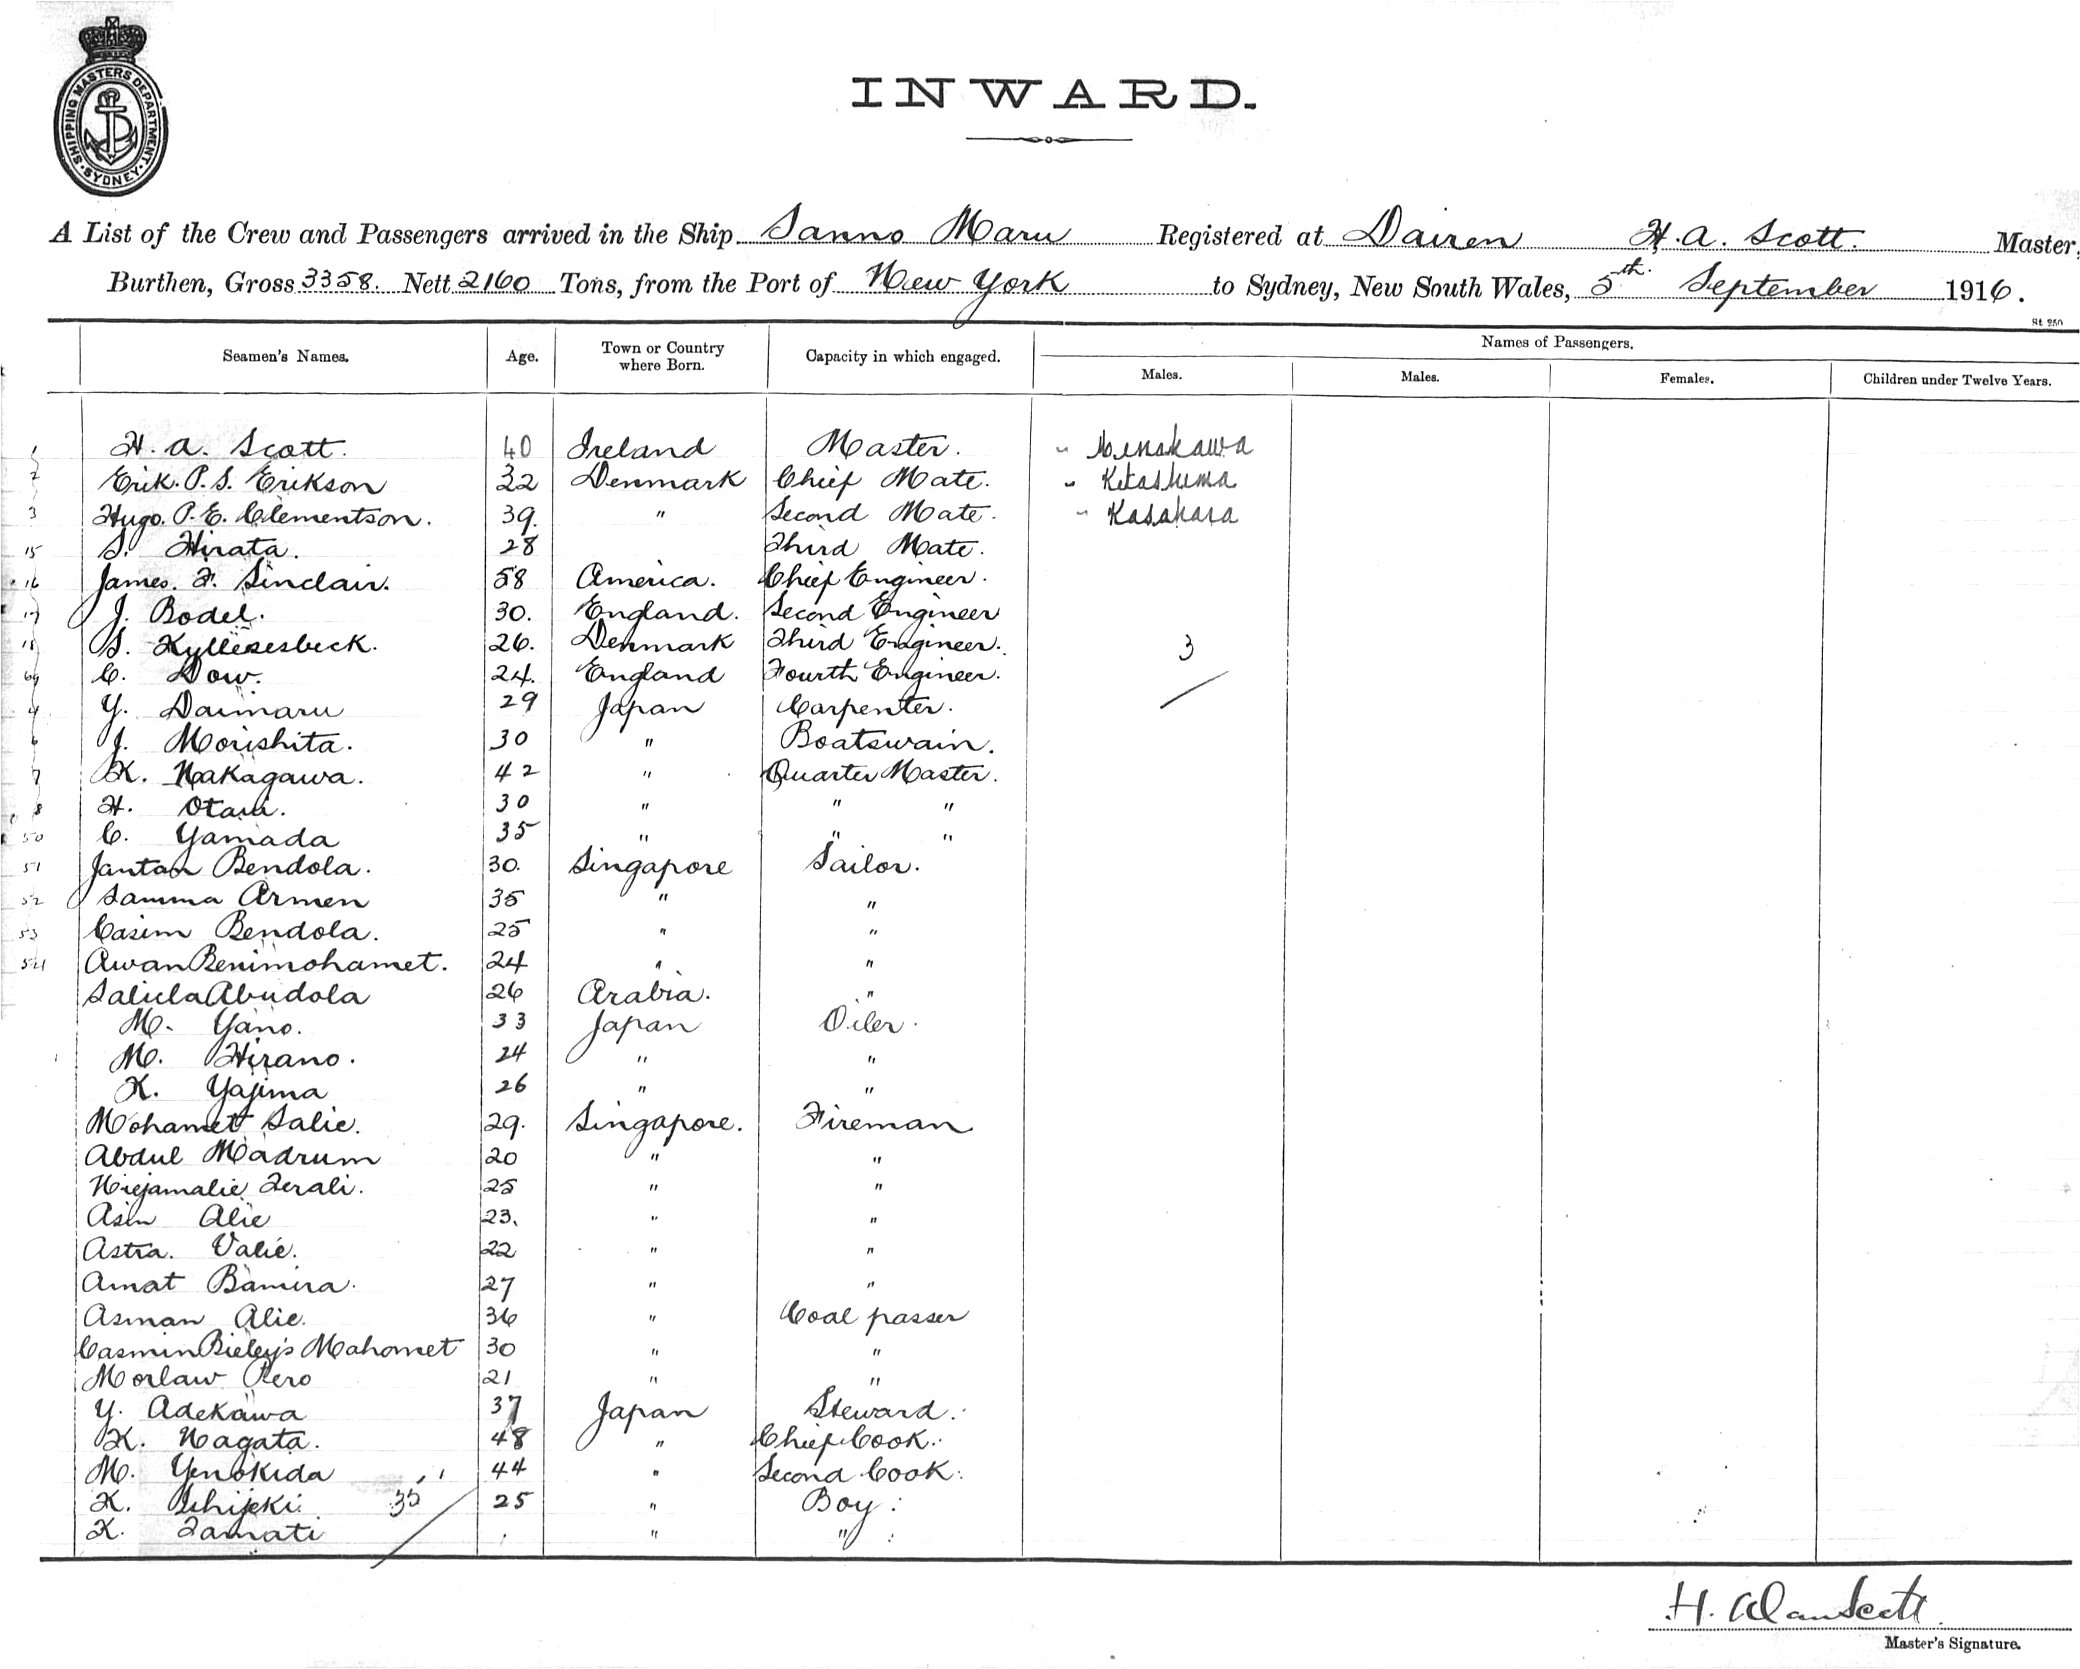 SHIPPING MASTERS DEPARTMENT · SYDNEY ·
INWARD.
A List of the Crew and Passengers arrived in the Ship Sanno Maru Registered at Dairen H. A. Scott. Master,
Burthen, Gross 3358. Nett 2160 Tons, from the Port of New York to Sydney, New South Wales, 5th. September 1916.
St 250
Seamen's Names. Age. Town or Country where Born. Capacity in which engaged. Names of Passengers.
Males. Males. Females. Children under Twelve Years.
1 H. A. Scott. 40 Ireland Master. " Menakawa
2 Erik. P. S. Erikson 32 Denmark Chief Mate. " Kitashima
3 Hugo. P. E. Clementson. 39. " Second Mate. " Kasahara
15 S. Hirata. 28 Third Mate.
16 James. F. Sinclair. 58 America. Chief Engineer.
17 J. Bodel. 30. England. Second Engineer
18 S. 26. Denmark Third Engineer. 3
C. Dow. 24. England Fourth Engineer.
4 Y. Daimaru 29 Japan Carpenter.
6 J. Morishita. 30 " Boatswain.
7 K. Nakagawa. 42 " Quarter Master.
8 H. Otani. 30 " " "
50 C. Yamada 35 " " "
51 Jantan Bendola. 30. Singapore Sailor.
52 Samma Armen 35 " "
53 Casim Bendola. 25 " "
54 Awan Benimohamet. 24 " "
Saliela Abudola 26 Arabia. "
M. Yano. 33 Japan Oiler.
M. Hirano. 24 " "
K. Yajima 26 " "
Mohamet Salie. 29. Singapore. Fireman
Abdul Madrum 20 " "
Niejamalie Zerali. 25 " "
Asin Alie 23. " "
Astra. Valie. 22 " "
Amat Bamira. 27 " "
Asman Alie. 36 " Coal passer
Casmin Mahomet 30 " "
Morlaw Pero 21 " "
Y. Adekawa 37 Japan Steward.
K. Nagata. 48 " Chief Cook.
M. Yenokida 44 " Second Cook.
K. Ishijeki. 35 25 " Boy.
K. Tamati " "
H. Alan Scott.
Master's Signature.